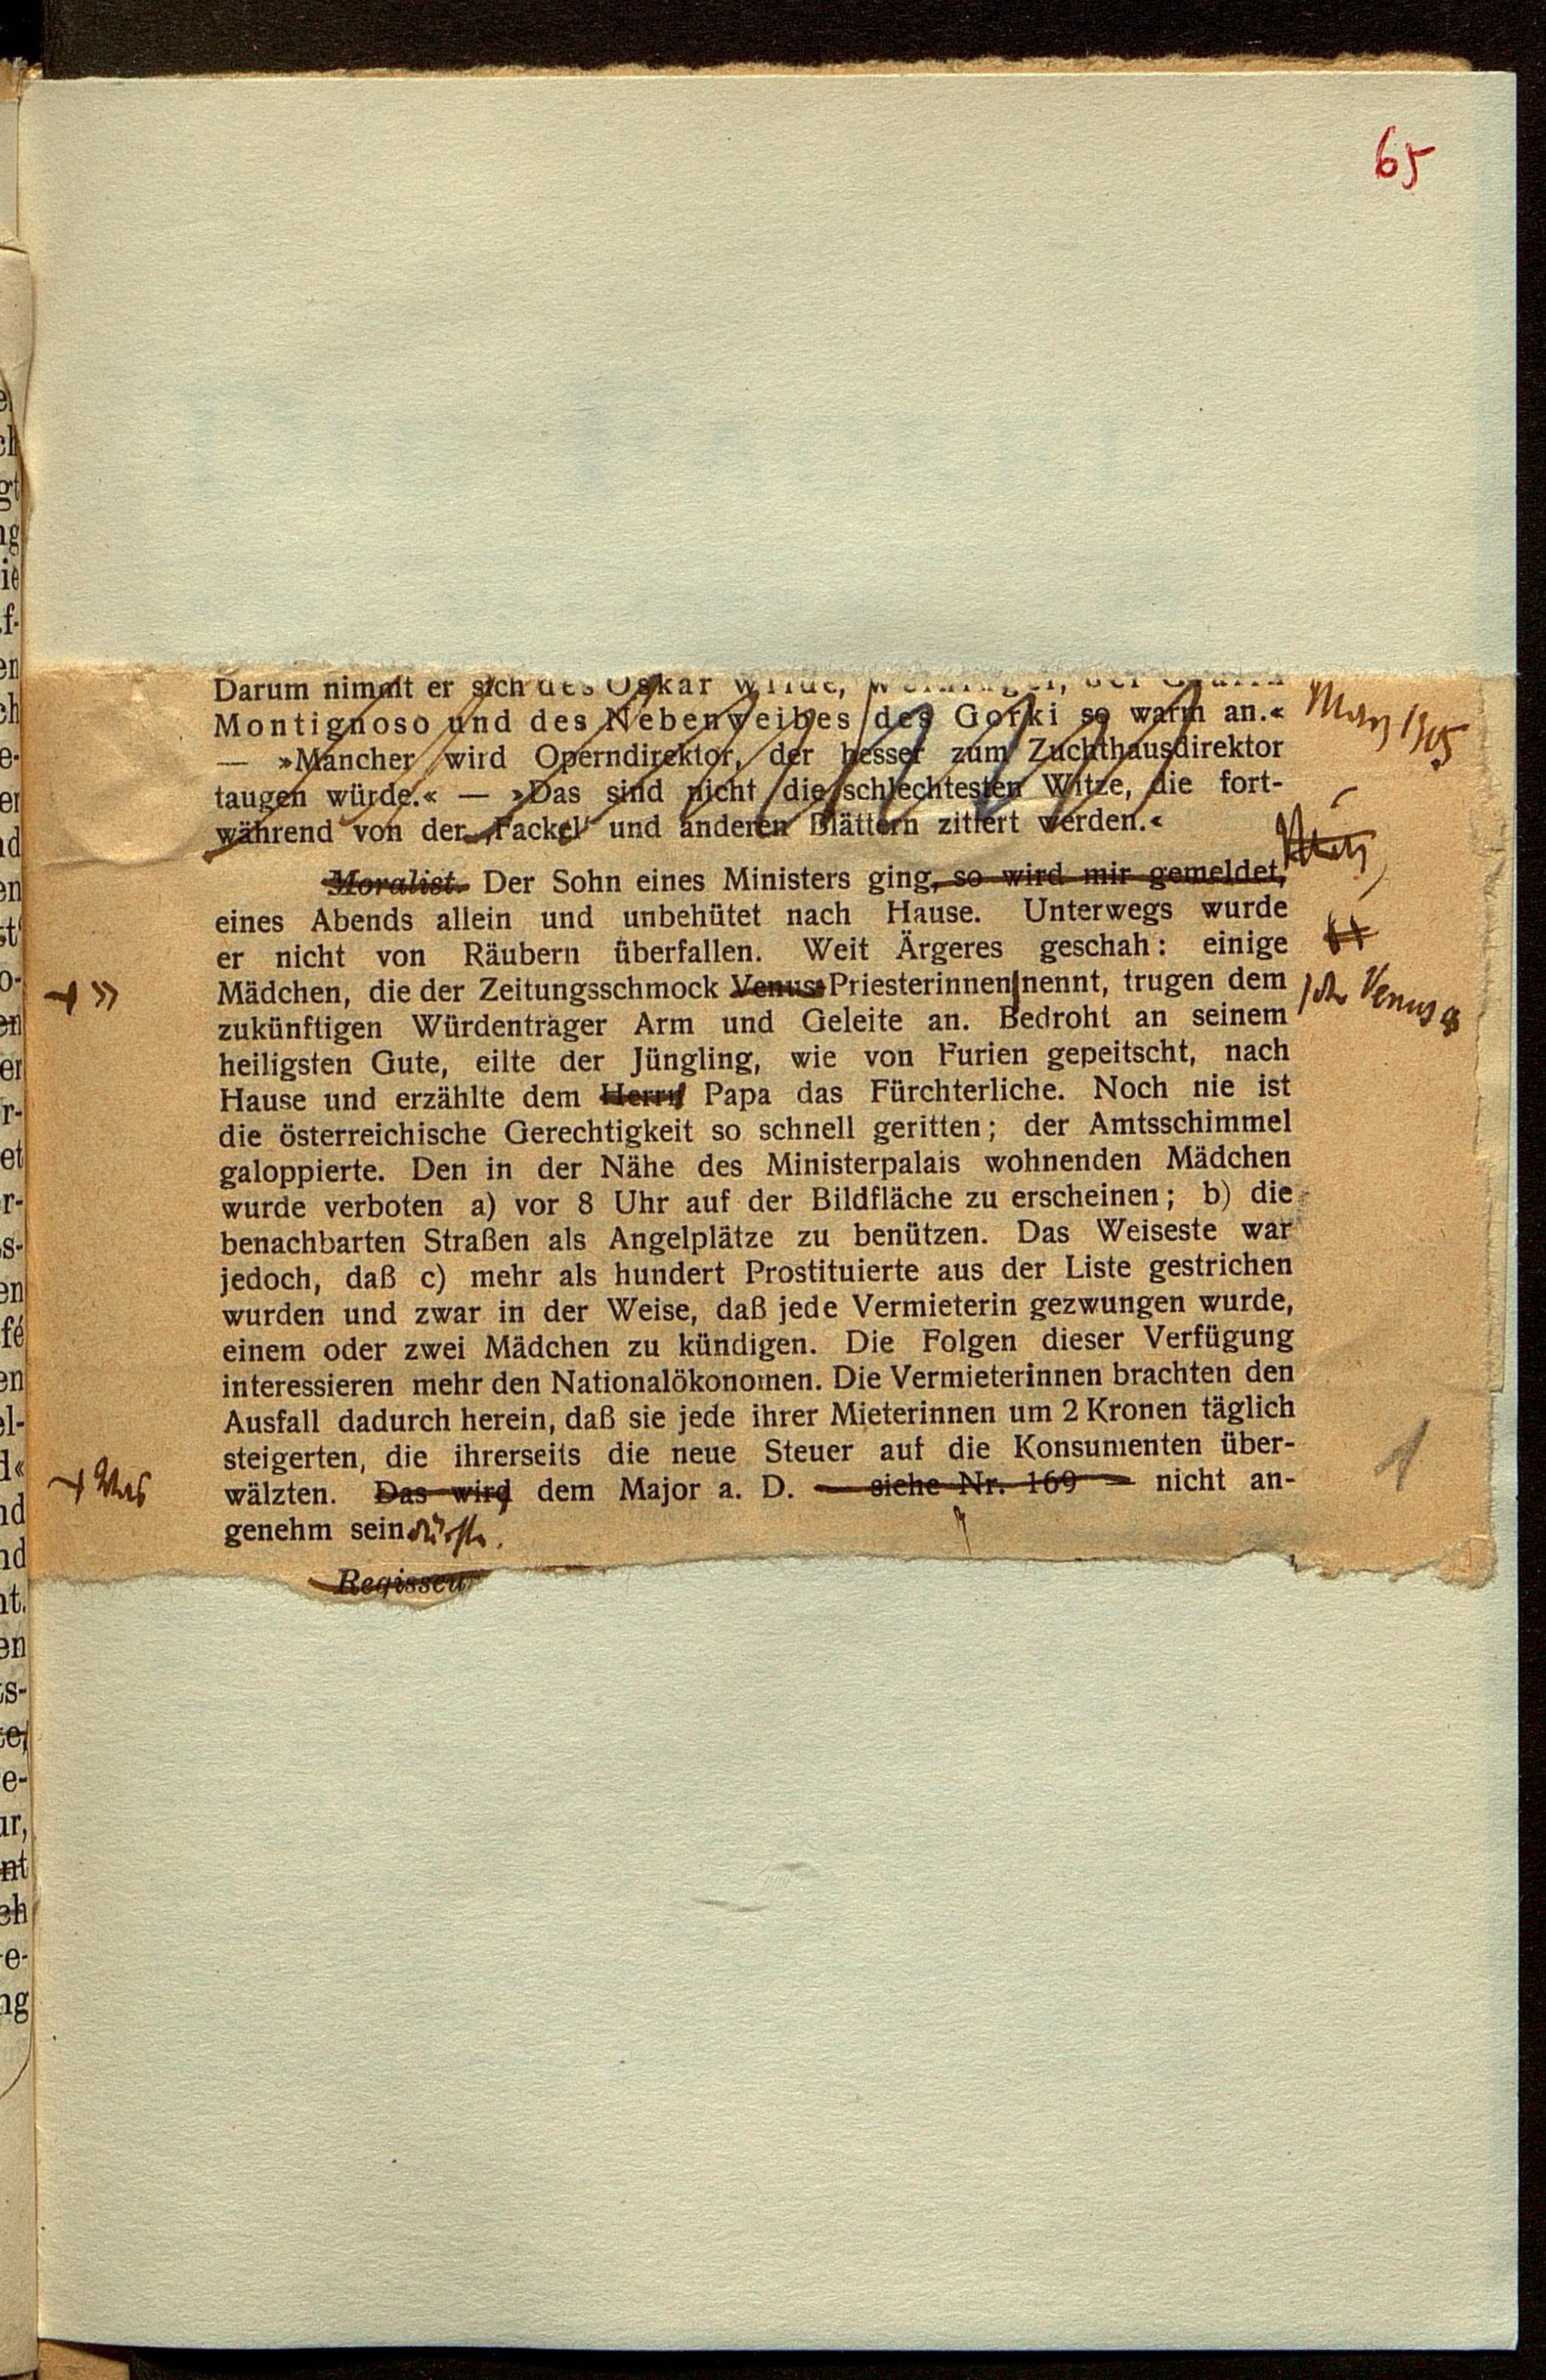 65
Darum nimmt er sich des Oskar Wilde,
Montignoso und des Nebenweibes des Gorki so warm an.«
März 1905
— »Mancher wird Operndirektor, der besser zum Zuchthausdirektor
taugen würde.« — »Das sind nicht die schlechtesten Witze, die fort-
während von der ‚Fackel‘ und anderen Blättern zitiert werden.«
Moralist. Der Sohn eines Ministers ging, so wird mir gemeldet,
eines Abends allein und unbehütet nach Hause. Unterwegs wurde
er nicht von Räubern überfallen. Weit Ärgeres geschah: einige
»
Mädchen, die der Zeitungsschmock Venus-Priesterinnen nennt, trugen dem
der Venus«
zukünftigen Würdenträger Arm und Geleite an. Bedroht an seinem
heiligsten Gute, eilte der Jüngling, wie von Furien gepeitscht, nach
Hause und erzählte dem Herrn Papa das Fürchterliche. Noch nie ist
die österreichische Gerechtigkeit so schnell geritten; der Amtsschimmel
galoppierte. Den in der Nähe des Ministerpalais wohnenden Mädchen
wurde verboten a) vor 8 Uhr auf der Bildfläche zu erscheinen; b) die
benachbarten Straßen als Angelplätze zu benützen. Das Weiseste war
jedoch, daß c) mehr als hundert Prostituierte aus der Liste gestrichen
wurden und zwar in der Weise, daß jede Vermieterin gezwungen wurde,
einem oder zwei Mädchen zu kündigen. Die Folgen dieser Verfügung
interessieren mehr den Nationalökonomen. Die Vermieterinnen brachten den
Ausfall dadurch herein, daß sie jede ihrer Mieterinnen um 2 Kronen täglich
steigerten, die ihrerseits die neue Steuer auf die Konsumenten über-
Was
wälzten. Das wird dem Major a. D. — siehe Nr. 169 — nicht an-
genehm sein dürfte.
1
Regisseur